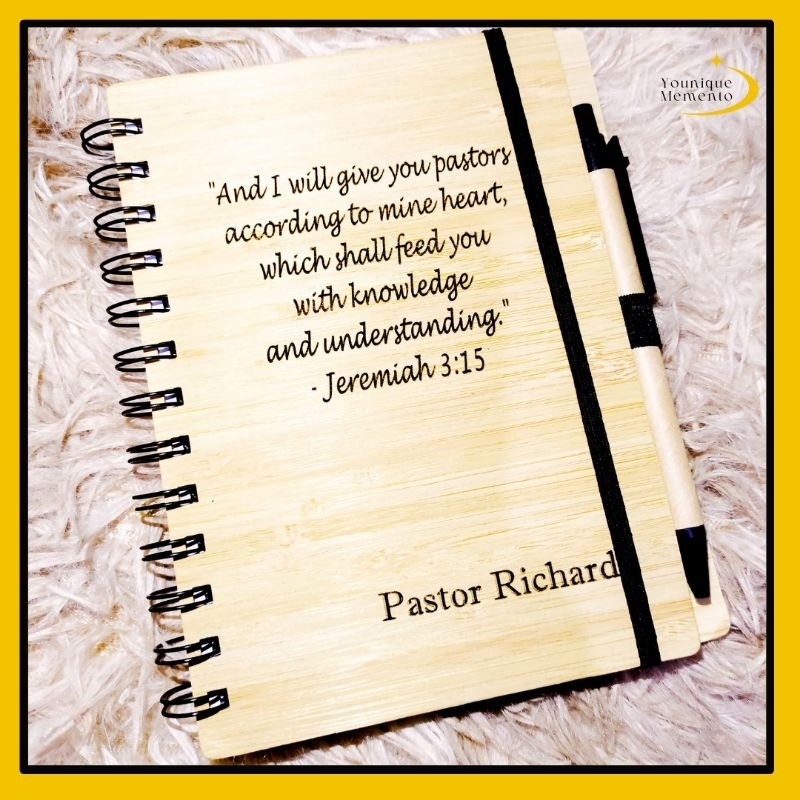 Younique
Memento
"And I will give you pastors
according to mine heart,
which shall feed you
with knowledge
and understanding."
- Jeremiah 3:15
Pastor Richard